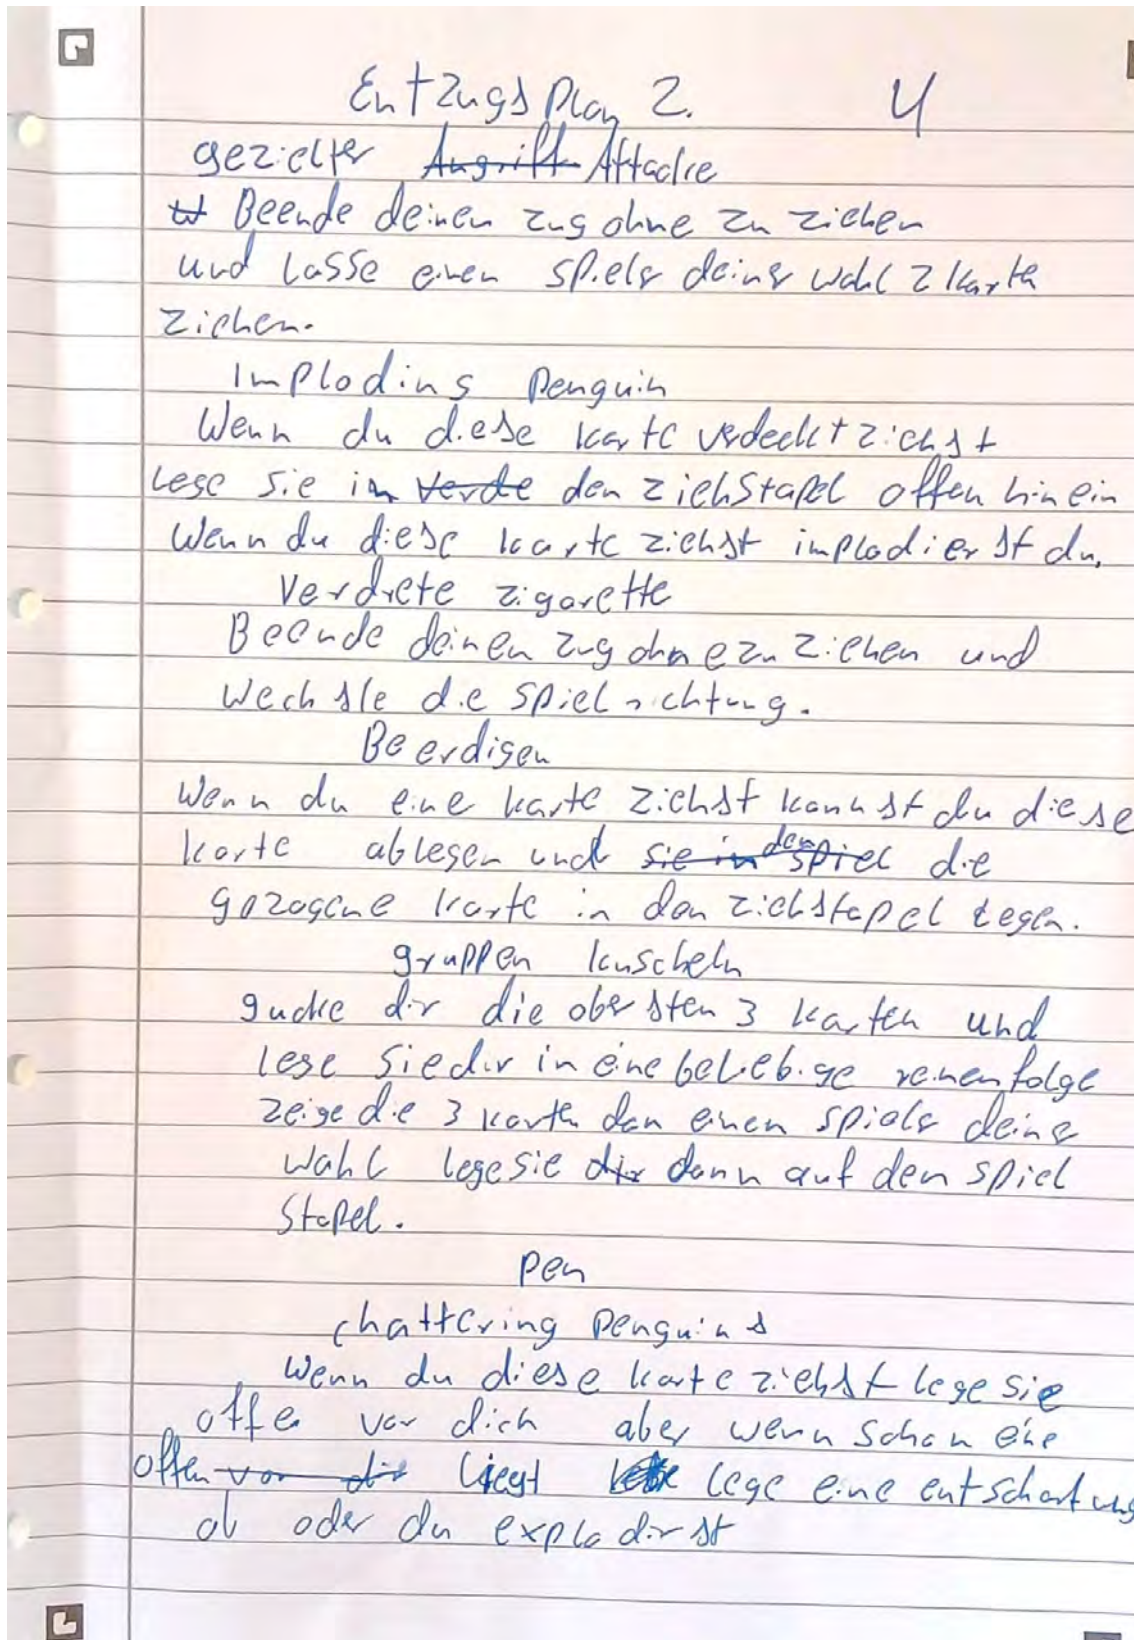 Entzugs Plan 2. 4
gezielter Angriff Attacke
Beende deinen zug ohne zu ziehen
und lasse einen spieler deiner wahl 2 karte
ziehen.
Imploding Penguin
Wenn du diese karte verdeckt ziehst
lege sie in verde den ziehstapel offen hinein
Wenn du diese karte ziehst implodierst du.
Verdrete zigarette
Beende deinen zug ohne zu ziehen und
Wechsle die spielrichtung.
Beerdigen
Wenn du eine karte ziehst kannst du diese
karte ablegen und sie in den spiel die
gozogene karte in den ziehstapel legen.
gruppen kuscheln
gucke dir die obersten 3 karten und
lege sie dir in eine beliebige reihenfolge
zeige die 3 karten dan einen spieler deiner
wahl lege sie dir dann auf den spiel
stapel.
pen
chattering penguins
Wenn du diese karte ziehst lege sie
offen vor dich aber wenn schon eine
offen vor dir liegt lege eine entscharfung
ab oder du explodirst